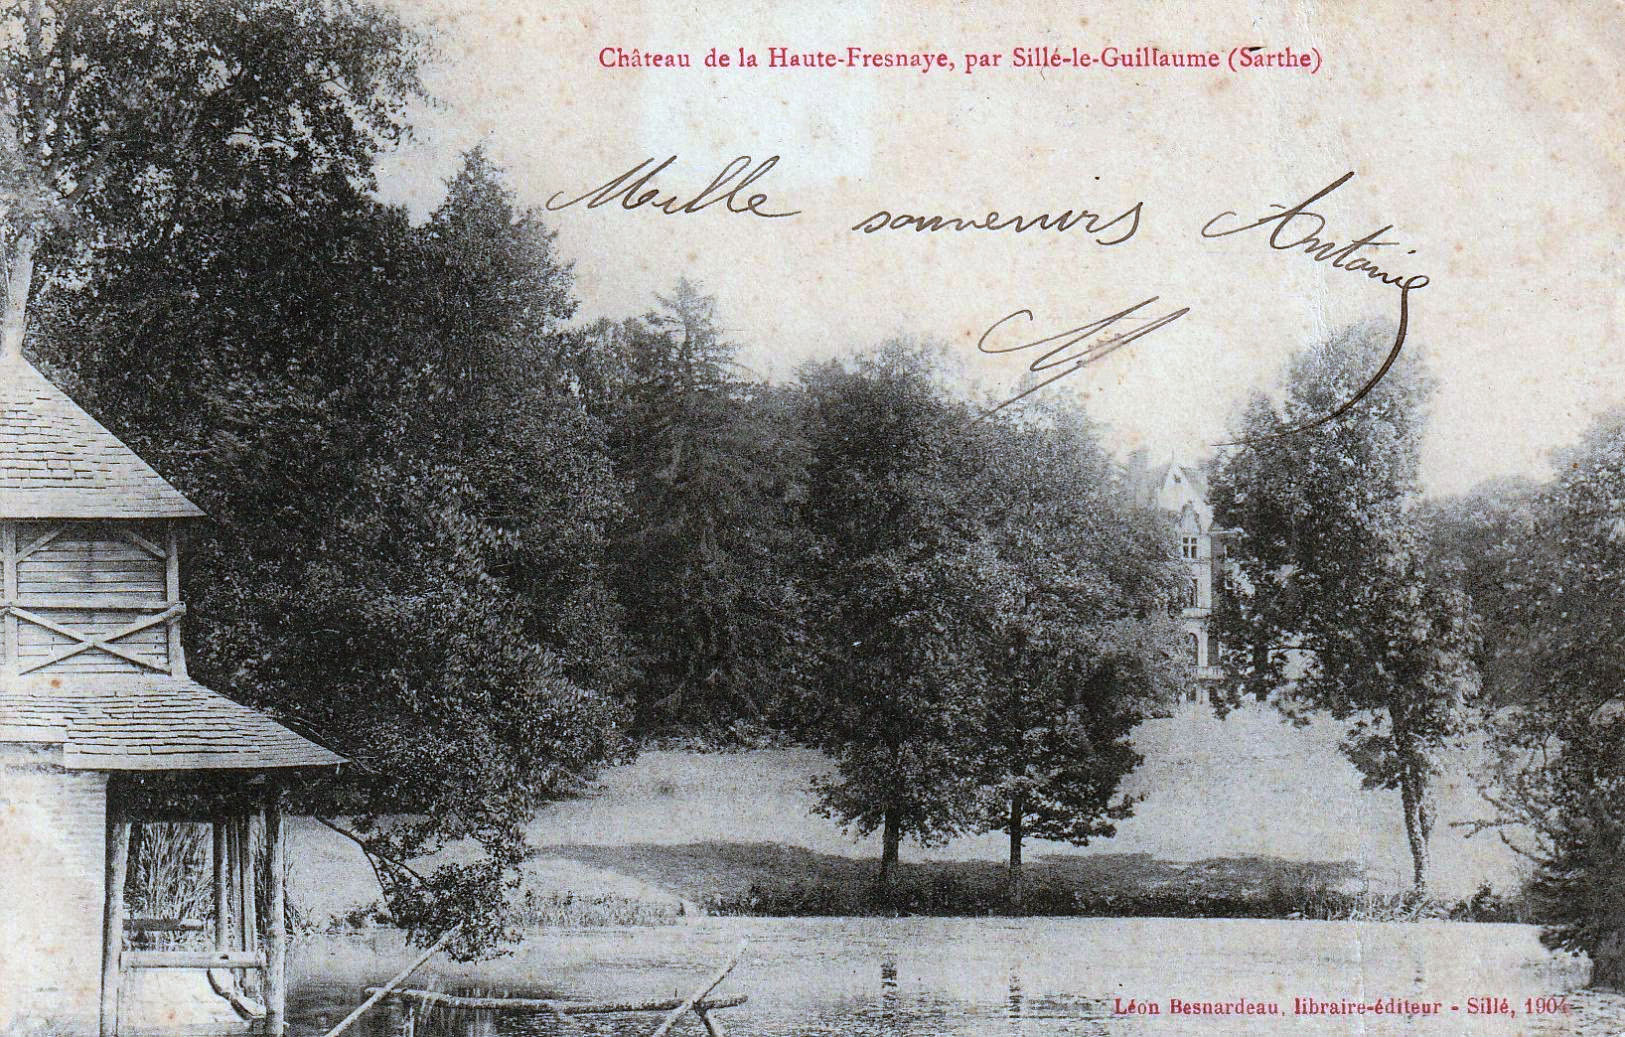 Château de la Haute-Fresnaye, par Sillé-le-Guillaume (Sarthe)
Mille souvenirs Antoine
Léon Besnardeau, libraire-éditeur - Sillé, 1904